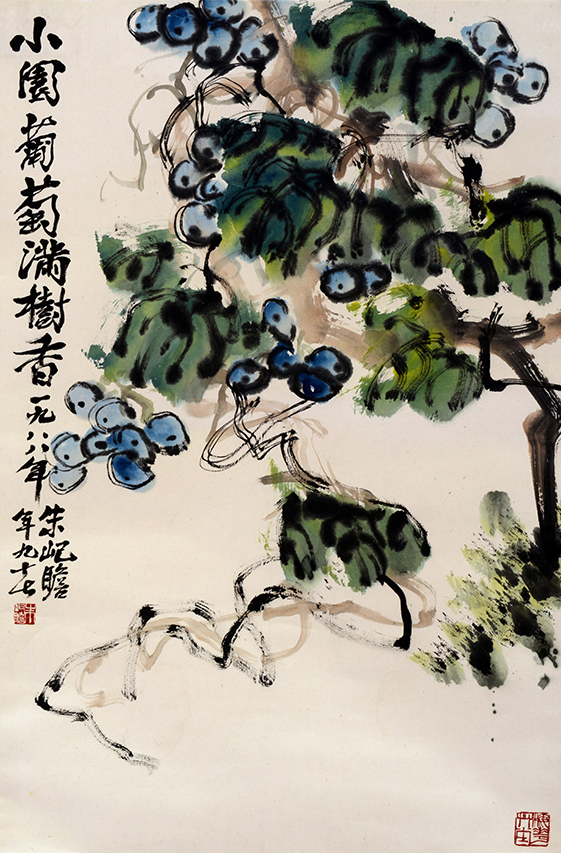 小園葡萄滿樹香一九八八年
朱屺瞻
年九十七